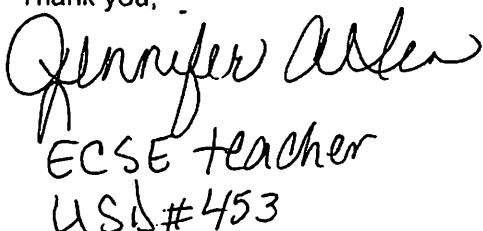 Thank you,
Jennifer
ECSE teacher
USD #453